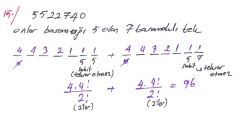 15.) 5522740
onlar basamağı 5 olan 7 basamaklı tek
4 4 3 2 1 1 1 + 4 4 3 2 1 1 1
0 5 5 0 5 7
sabit sabit
(tekrar etmez) tekrar etmez
4.4! / 2! + 4.4! / 2! = 96
(2'ler) (2'ler)